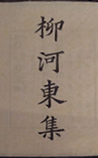 柳河東集